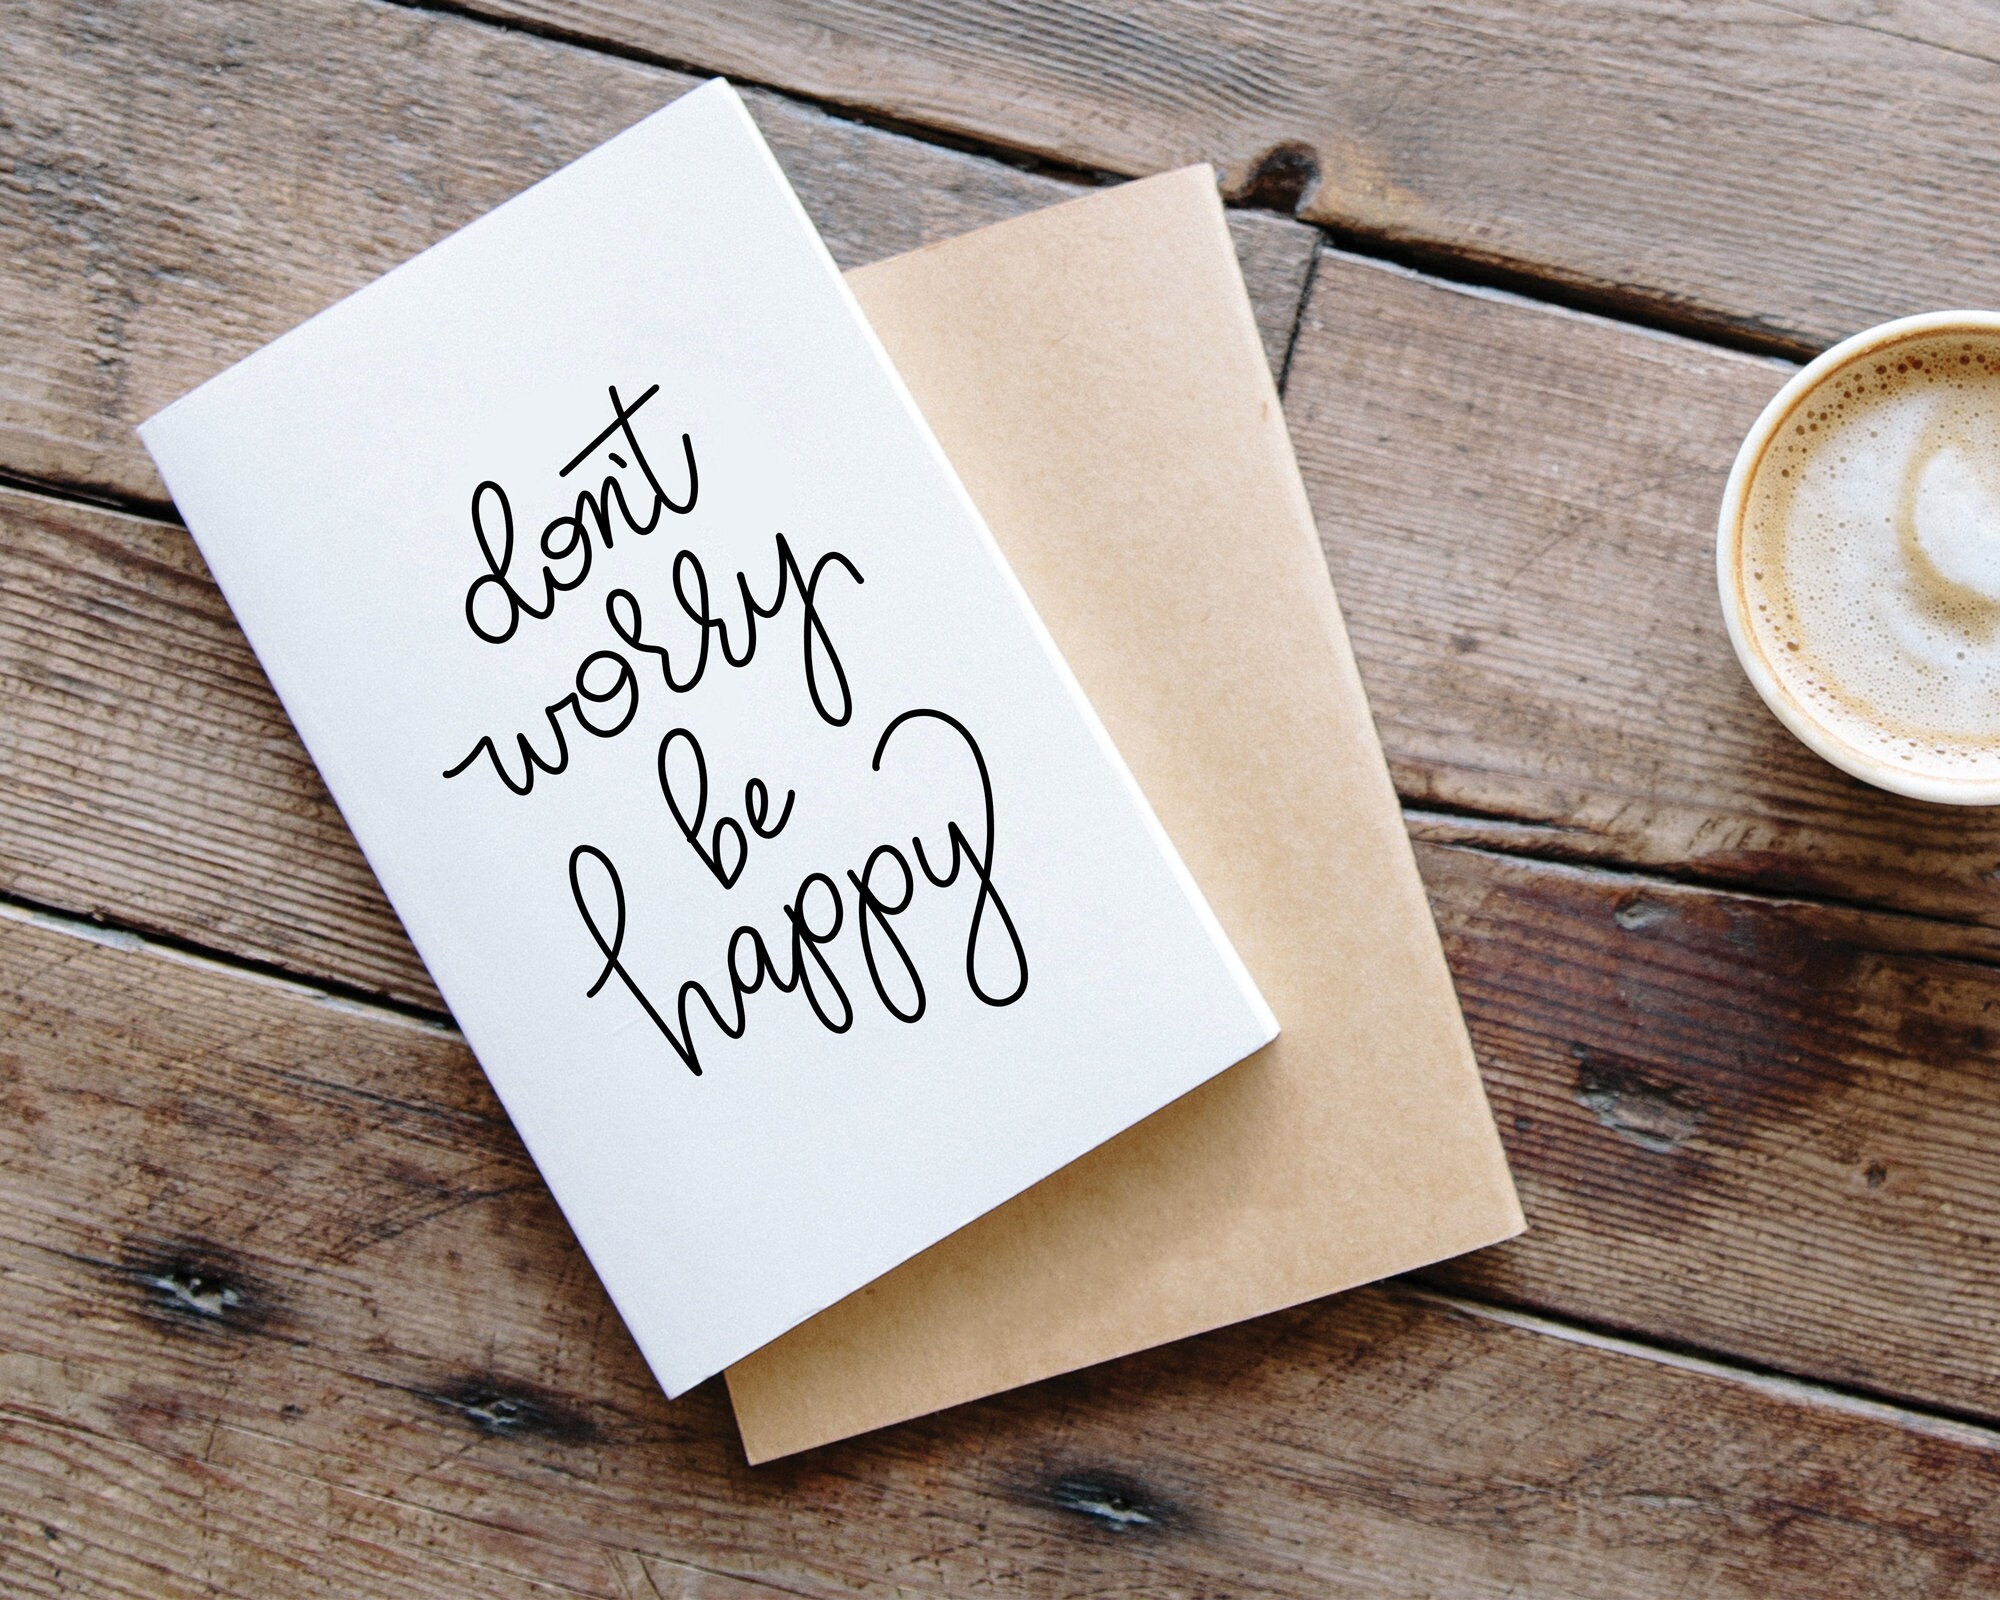 don't
worry
be
happy